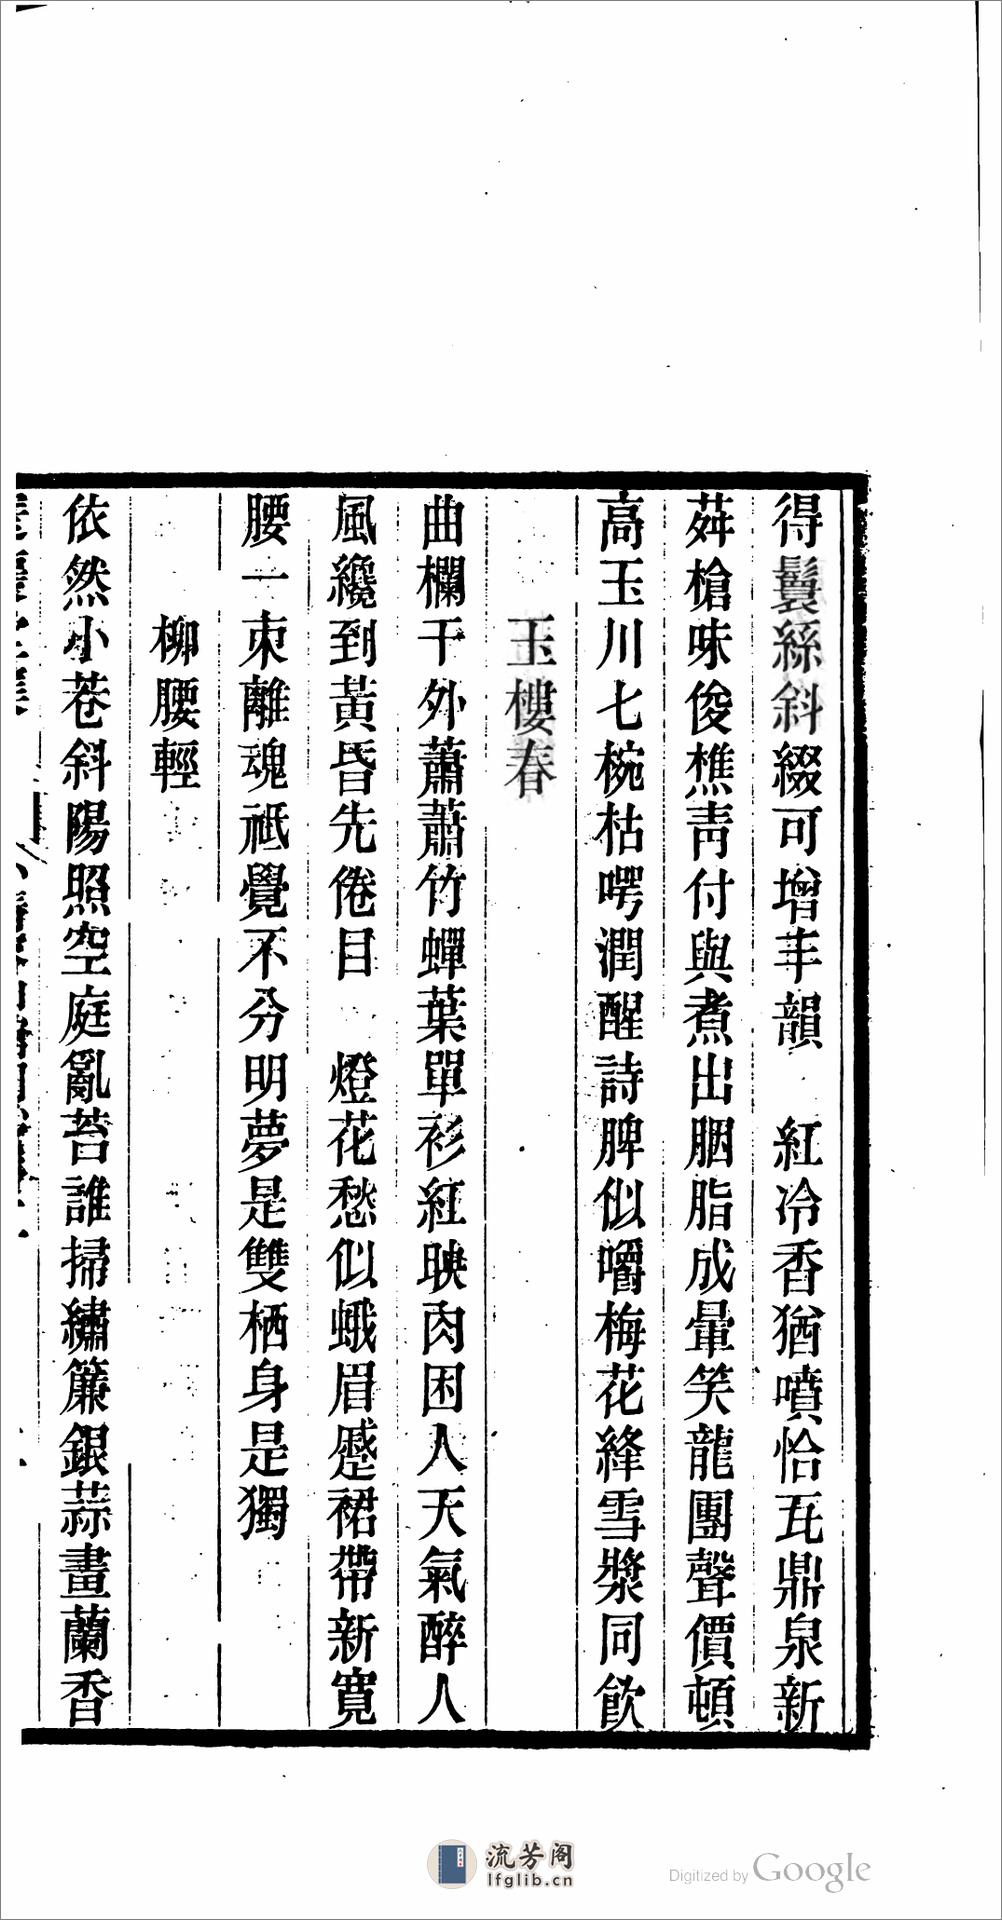 得鬟絲斜綴可增丰韻　紅冷香猶噴恰瓦鼎泉新
荈槍味俊樵靑付與煮出胭脂成暈笑龍團聲價頓
高玉川七椀枯咢潤醒詩脾似嚼梅花絳雪漿同飲
玉樓春
曲欄干外蕭蕭竹蟬葉單衫紅映肉困人天氣醉人
風纔到黃昏先倦目　燈花愁似蛾眉蹙裙帶新寬
腰一朿離魂祇覺不分明夢是雙栖身是獨
柳腰輕
依然小巷斜陽照空庭亂苔誰掃繡簾銀蒜畫蘭香
流芳阁
lfglib.cn
Digitized by Google